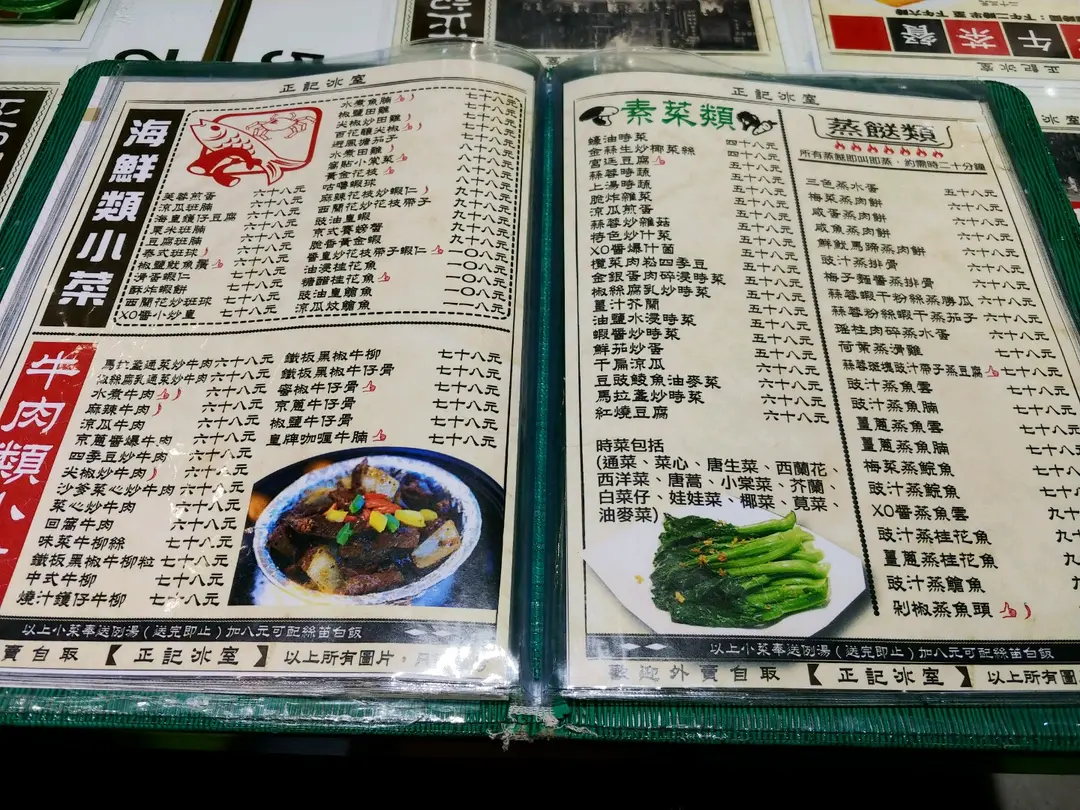 正記冰室
海鮮類小菜
芙蓉煎蛋 六十八元
涼瓜班腩 六十八元
海皇鑊仔豆腐 六十八元
粟米班腩 六十八元
豆腐班腩 六十八元
泰式班球 六十八元
椒鹽魷魚鬚 六十八元
滑蛋蝦仁 七十八元
酥炸蝦餅 七十八元
西蘭花炒班球 七十八元
XO醬小炒皇 七十八元
水煮魚腩 七十八元
椒鹽田雞 七十八元
尖椒炒田雞 七十八元
百花釀尖椒
避風塘茄子
水煮田雞
黃金花枝
咕嚕蝦球
麻辣花枝炒蝦仁
西蘭花炒花枝帶子 九十八元
豉油皇蝦 九十八元
京式賽螃蟹 九十八元
脆香黃金蝦 九十八元
醬皇炒花枝帶子蝦仁 一〇八元
油浸桂花魚 一〇八元
糖醋桂花魚 一〇八元
豉油皇鱠魚
涼瓜炆鱠魚
牛肉類小
馬拉盞通菜炒牛肉 六十八元
椒絲腐乳通菜炒牛肉 六十八元
水煮牛肉 六十八元
麻辣牛肉 六十八元
涼瓜牛肉 六十八元
京蔥醬爆牛肉 六十八元
四季豆炒牛肉 六十八元
尖椒炒牛肉 六十八元
沙爹菜心炒牛肉 六十八元
菜心炒牛肉 六十八元
回窩牛肉 六十八元
味菜牛柳絲 七十八元
鐵板黑椒牛柳粒 七十八元
中式牛柳 七十八元
燒汁鑊仔牛柳 七十八元
鐵板黑椒牛柳 七十八元
鐵板黑椒牛仔骨 七十八元
蜜椒牛仔骨 七十八元
京蔥牛仔骨 七十八元
椒鹽牛仔骨 七十八元
皇牌咖喱牛腩 七十八元
以上小菜奉送例湯(送完即止)加八元可配絲苗白飯
賣自取 【正記冰室】 以上所有圖片，
正記冰室
素菜類
蠔油時菜 四十八元
金絲生炒椰菜絲 四十八元
宮廷豆腐 五十八元
蒜蓉時蔬 五十八元
上湯時蔬 五十八元
脆炸雜菜 五十八元
涼瓜煎蛋 五十八元
蒜蓉炒雜菇 五十八元
特色炒什菜 五十八元
XO醬爆什菌 五十八元
欖菜肉崧四季豆 五十八元
金銀蛋肉碎浸時菜 五十八元
椒絲腐乳炒時菜 五十八元
薑汁芥蘭 五十八元
油鹽水浸時菜 五十八元
蝦醬炒時菜 五十八元
鮮茄炒蛋 五十八元
干扁涼瓜 五十八元
豆豉鯪魚油麥菜 六十八元
馬拉盞炒時菜 六十八元
紅燒豆腐 六十八元
時菜包括
(通菜、菜心、唐生菜、西蘭花、
西洋菜、唐蒿、小棠菜、芥蘭、
白菜仔、娃娃菜、椰菜、莧菜、
油麥菜)
蒸餸類
所有蒸餸即叫即蒸，約需時二十分鐘
三色蒸水蛋 五十八元
梅菜蒸肉餅 六十八元
咸蛋蒸肉餅 六十八元
咸魚蒸肉餅 六十八元
鮮魷馬蹄蒸肉餅 六十八元
豉汁蒸排骨 六十八元
梅子麵醬蒸排骨 六十八元
蒜蓉蝦干粉絲蒸勝瓜 六十八元
蒜蓉粉絲蝦干蒸茄子 六十八元
瑤柱肉碎蒸水蛋 六十八元
荷葉蒸滑雞 七十八元
蒜蓉班塊豉汁帶子蒸豆腐 七十八元
豉汁蒸魚雲 七十八元
豉汁蒸魚腩 七十八元
薑蔥蒸魚雲 七十八元
薑蔥蒸魚腩 七十八元
梅菜蒸鯇魚 七十八
豉汁蒸鯇魚 七十八
XO醬蒸魚雲 七十
豉汁蒸桂花魚 九十
薑蔥蒸桂花魚 九十
豉汁蒸鱠魚 九
剁椒蒸魚頭
以上小菜奉送例湯(送完即止)加八元可配絲苗白飯
歡迎外賣自取 【正記冰室】 以上所有圖